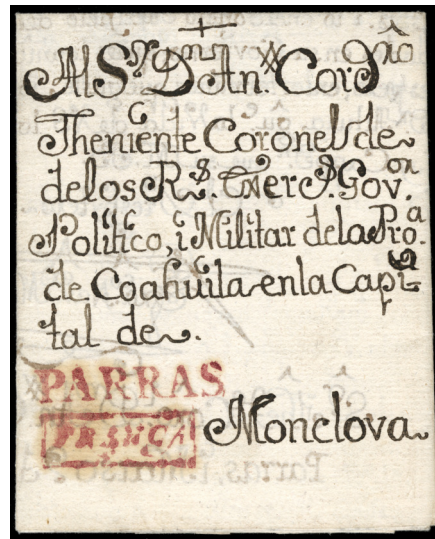 Al S.r D.n An.to Cord.ro
Theniente Coronel de
de los R.s Exer.s Gov.on
Politico, i Militar de la Pro.a
de Coahuila en la Capi-
tal de.
PARRAS
FRANCA
Monclova